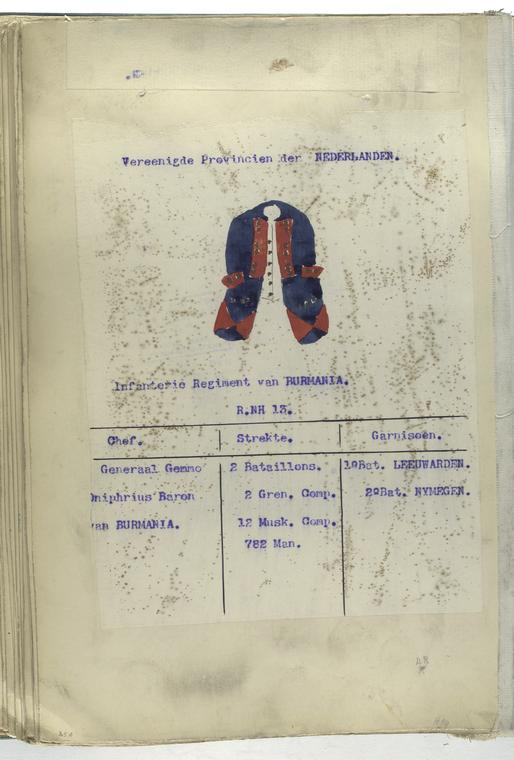 Vereenigde Provincien der NEDERLANDEN.
Infanterie Regiment van BURMANIA.
R.NH 13.
Chef. Strekte. Garnisoen.
Generaal Gemmo 2 Bataillons. 1ºBat. LEEUWARDEN.
Oniphrius Baron 2 Gren. Comp. 2ºBat. NYMEGEN.
van BURMANIA. 12 Musk. Comp.
782 Man.